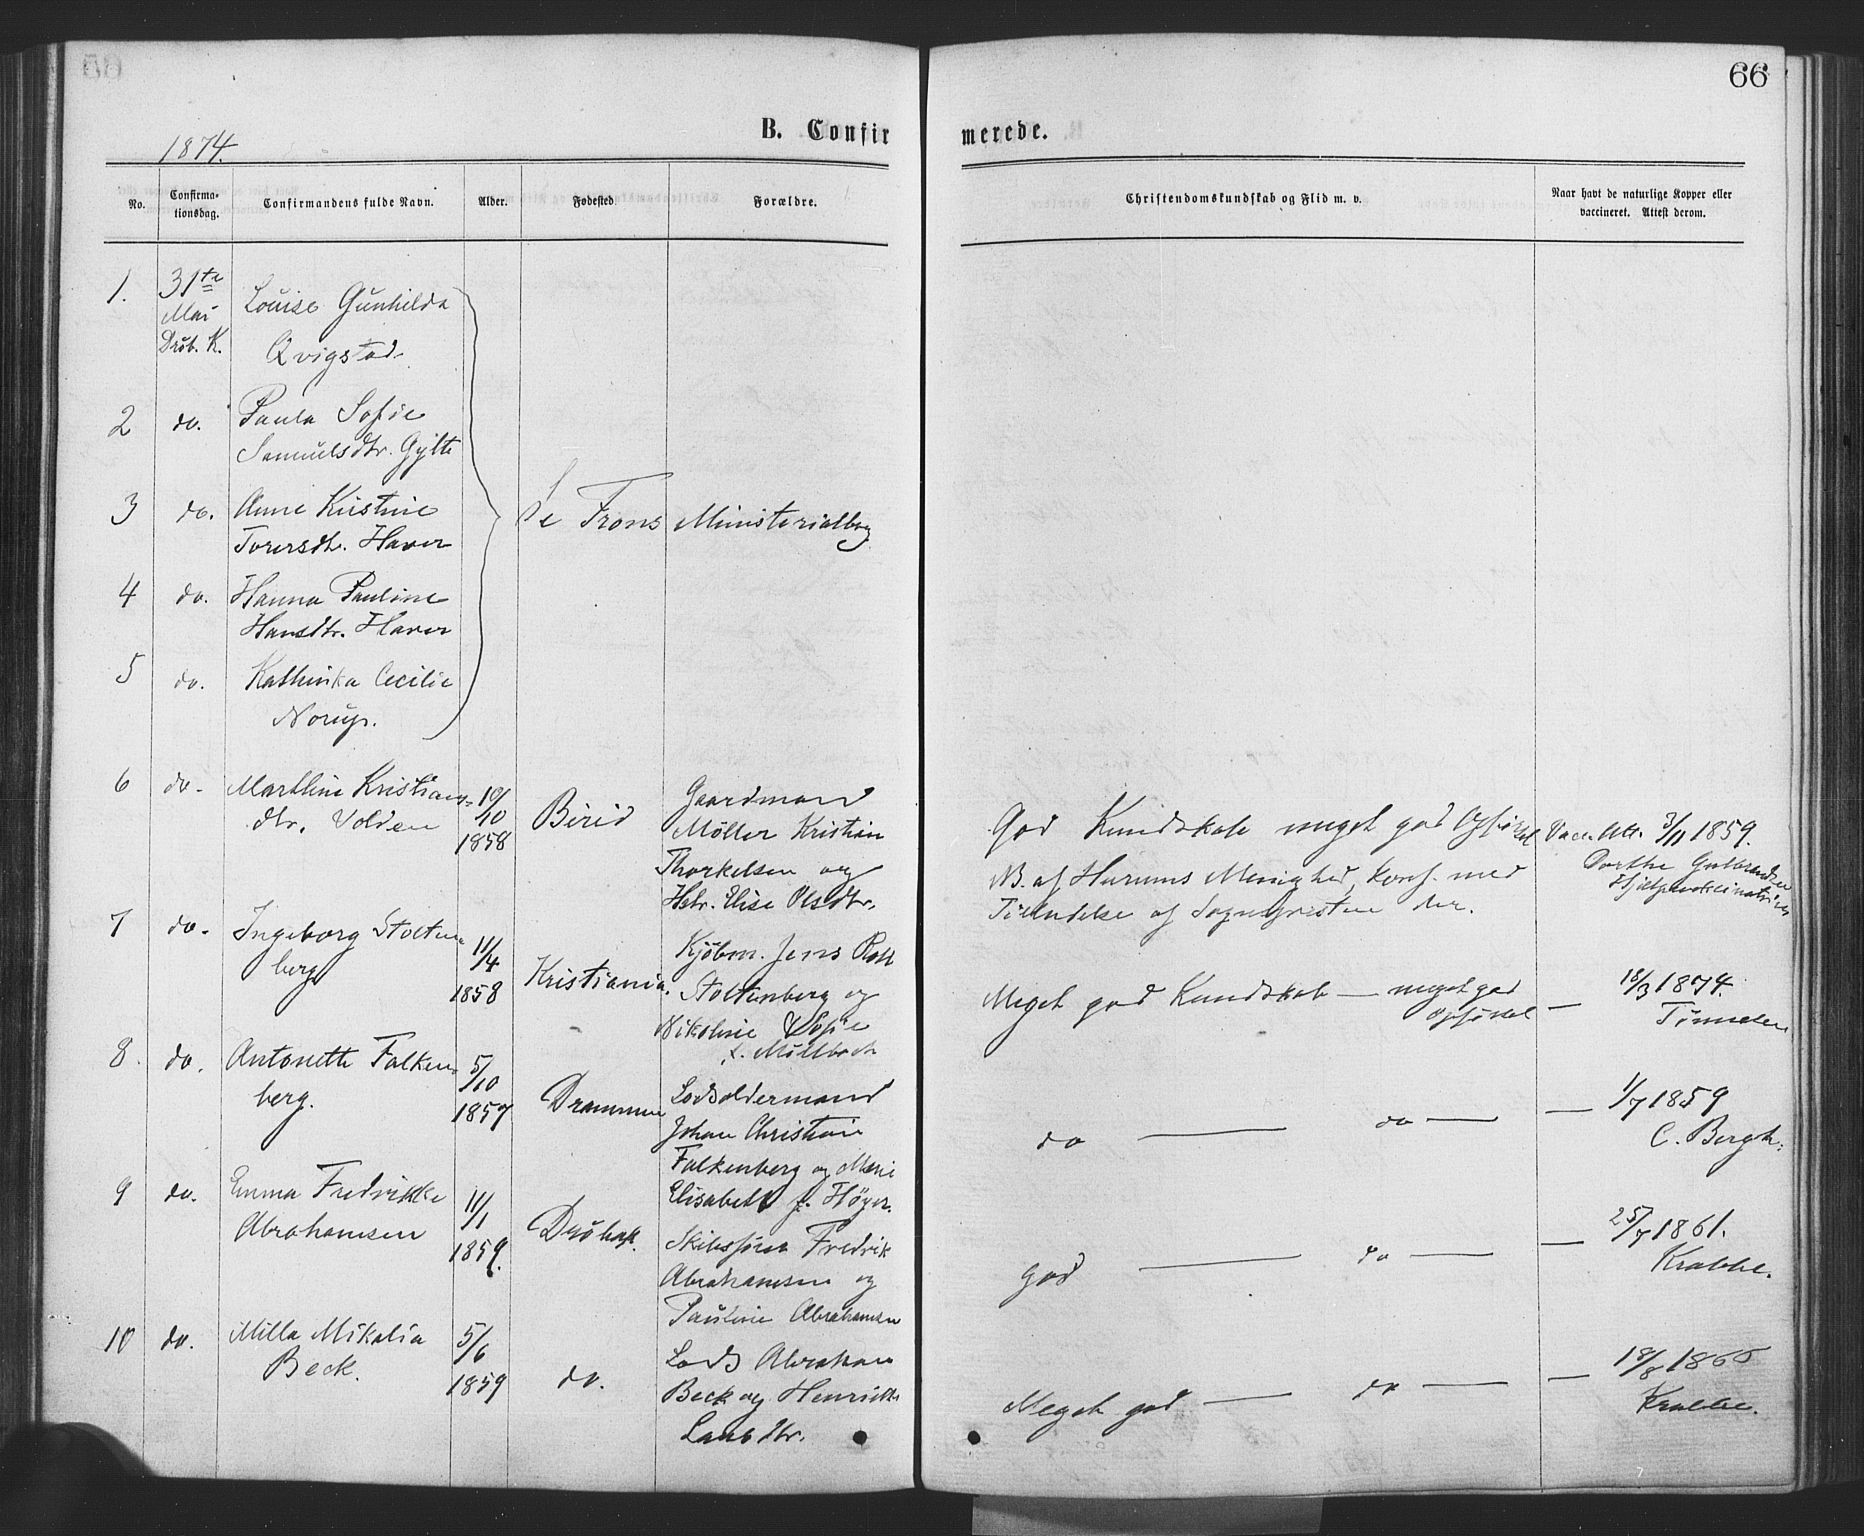 66
1874.
B. Confirmerede.
No.
Confirmationsdag.
Confirmandens fulde Navn.
Alder.
Fødested
Forældre.
Christendomskundskab og Flid m. v.
Naar havt de naturlige Kopper eller
vaccineret. Attest derom.
1.
31te
Mai
Drøb. K.
Louise Gunhilda
Qvigstad
2
do.
Paula Sofie
Samuelsdtr. Gylte
3
do.
Anne Kristine
Torersdtr. Haver
Se Frons Ministerialbog
4
do.
Hanna Pauline
Hansdtr. Haver
5
do.
Kathinka Cecilie
Norup.
6
do.
Marthine Kristians-
dtr. Volden
10/10
1858
Birid
Gaardmand
Møller Kristian
Thorkelsen og
Hstr. Elise Olsdtr.
God Kundskab meget god Opførsel
NB. af Hurums Menighed, konf. med
Tilladelse af Sognepresten der.
Vacc. Att. 3/11 1859.
Dorthe Gulbrandsen
Hjælpevaccinatrice
7
do.
Ingeborg Stolten-
berg
11/4
1858
Kristiania.
Kjøbm. Jens
Stoltenberg og
Nikoline Sofie
f. Møllbach
Meget god Kundskab — meget god
Opførsel —
18/3 1874.
8.
do.
Antonette Falken-
berg.
5/10
1857
Drammen
Lodsoldermand
Johan Christian
Falkenberg og Marie
Elisabeth f. Höyer.
do — do — —
1/7 1859
C. Bergh.
9
do.
Emma Fredrikke
Abrahamsen
11/1
1859.
Drøbak.
Skibsfører Fredrik
Abrahamsen og
Pauline Abrahamsen
god — do — —
25/7 1861.
Krabbe.
10
do.
Milla Mikalia
Beck.
5/6
1859
do.
Lods Abraham
Beck og Henrikke
Larsdtr.
Meget god — do — —
18/8 1865
Krabbe.